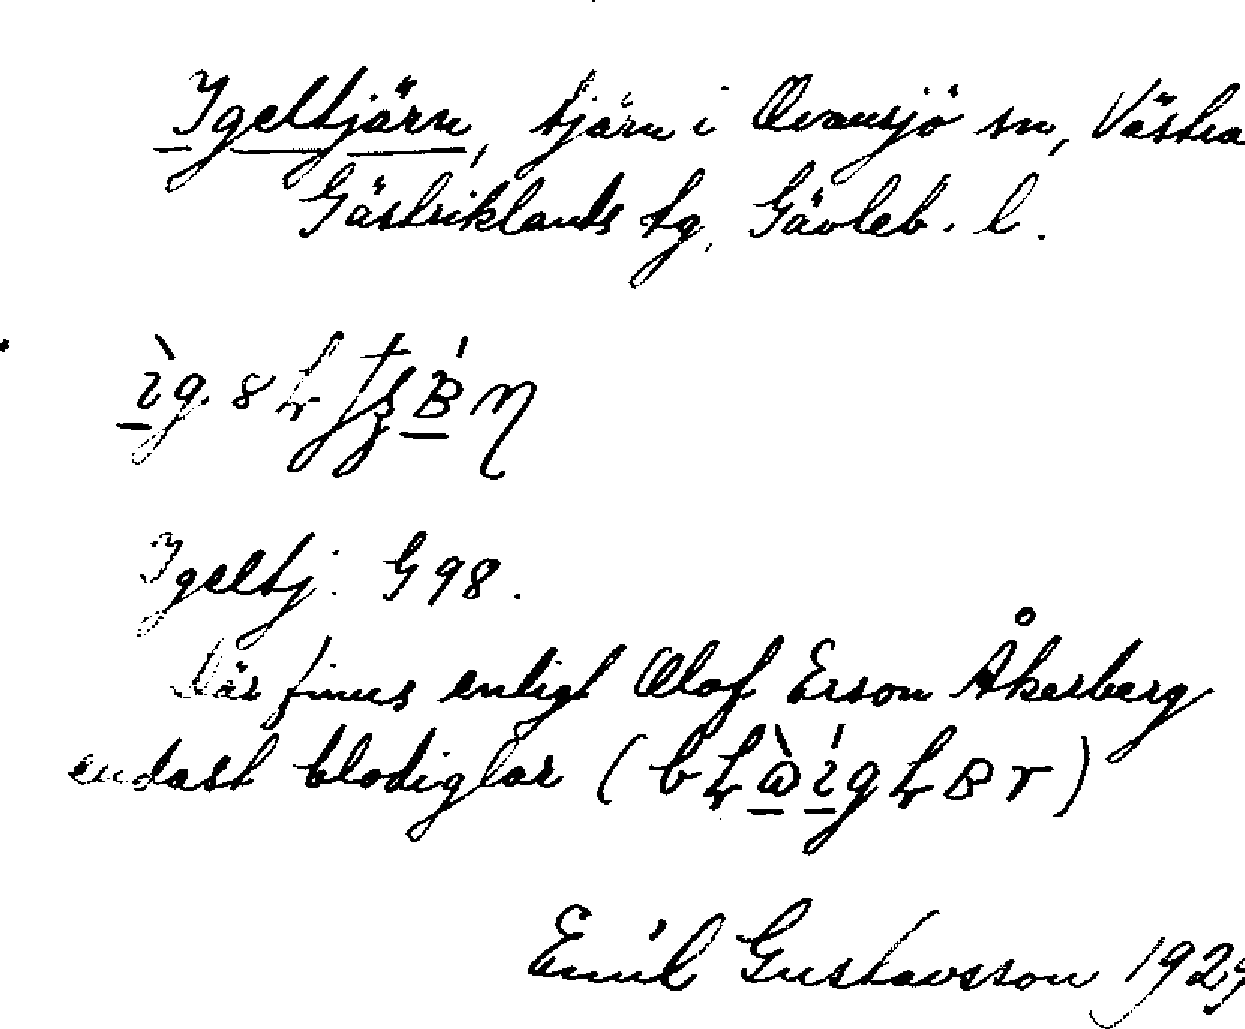 Igeltjärn, tjärn i Ovansjö sn, Västra
Gästriklands tg, Gävleb. l.
Igeltj. G 98.
där finns enligt Olof Erson Åkerberg
endast blodiglar
Emil Gustavsson 1924